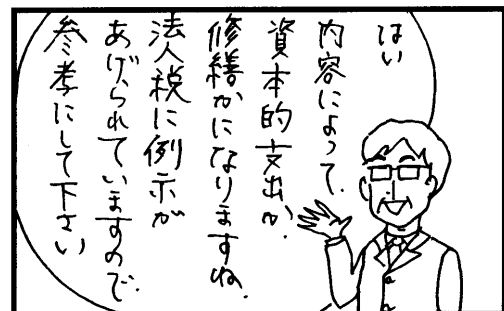 はい
内容によって、
資本的支出か、
修繕かになりますね。
法人税に例示が
あげられていますので、
参考にして下さい